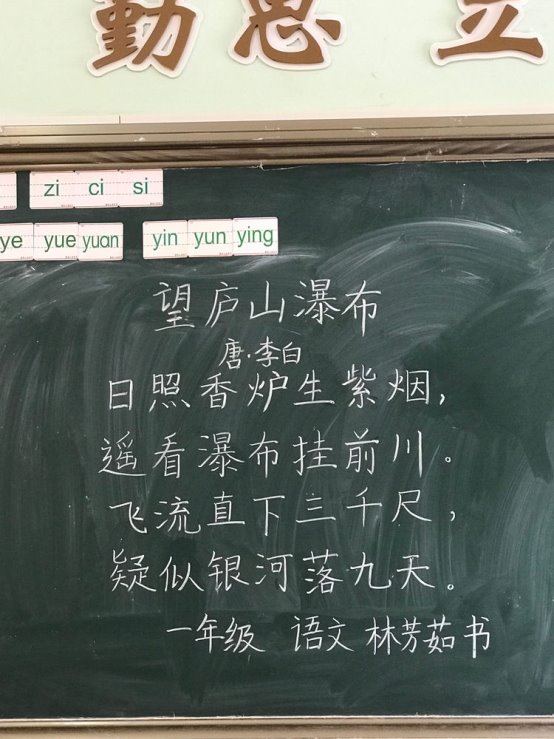 勤思 立
zi ci si
ye yue yuan yin yun ying
望庐山瀑布
唐·李白
日照香炉生紫烟，
遥看瀑布挂前川。
飞流直下三千尺，
疑似银河落九天。
一年级 语文 林芳茹书